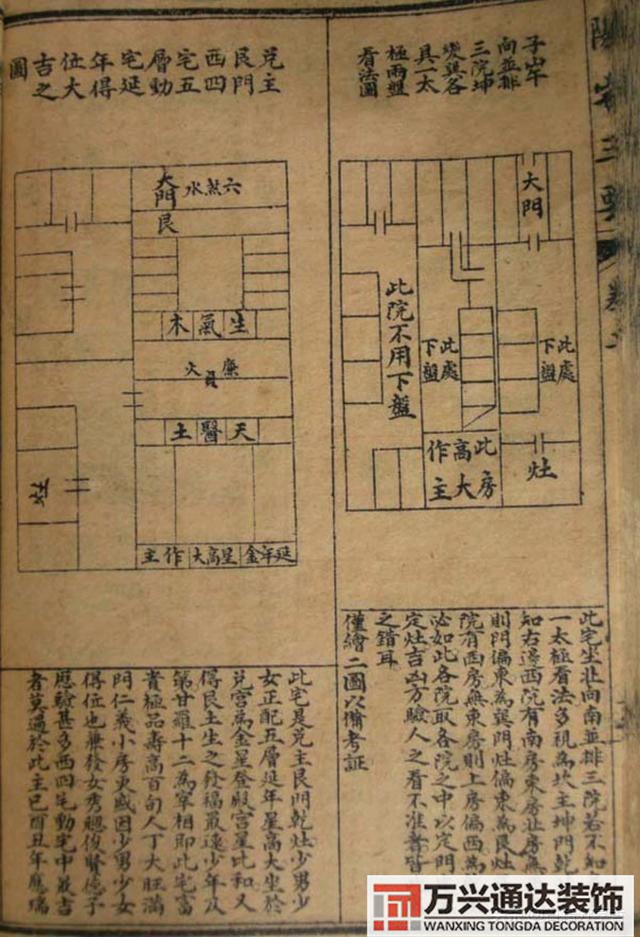 陽宅三要
子山午
向並排
三院坤
巽各
具一太
極兩盤
看法圖
大門
此院不用下盤
此處下盤
此處下盤
此房高大作主
灶
此宅坐北向南並排三院若不知
一太極看法多視為坎主坤門乾
知右邊西院有南房東房北房無
則門偏東為巽門灶偏東為艮灶
院有西房無東房則上房偏西為
必如此各院取各院之中以定門
定灶吉凶方驗人之看不準者皆
之錯耳
僅繪二圖以備考証
兌主
艮門
西四
宅五
層動
宅延
年得
位大
吉之
圖
六煞水
大門
艮
生氣木
廉貞火
天醫土
延年金星高大作主
灶
此宅是兌主艮門乾灶少男少
女正配五層延年星高大坐於
兌宮為金星登殿宮星比和又
得艮土生之發福最遠少年及
第甘羅十二為宰相即此宅富
貴極品壽高百旬人丁大旺滿
門仁義小房更盛因少男少女
得位也兼發女秀聰俊賢德子
應驗甚多西四宅動宅中最吉
者莫過於此主巳酉丑年應瑞
万兴通达装饰
WANXING TONGDA DECORATION